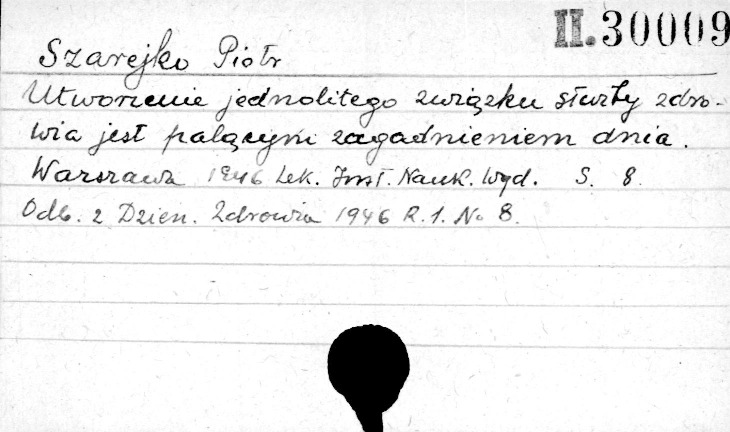 II. 30009
Szarejko Piotr
Utworzenie jednolitego związku służby zdro-
wia jest palącym zagadnieniem dnia.
Warszawa 1946 Lek. Inst. Nauk. Wyd. S. 8.
Odb. z Dzien. Zdrowia 1946 R. 1. No 8.